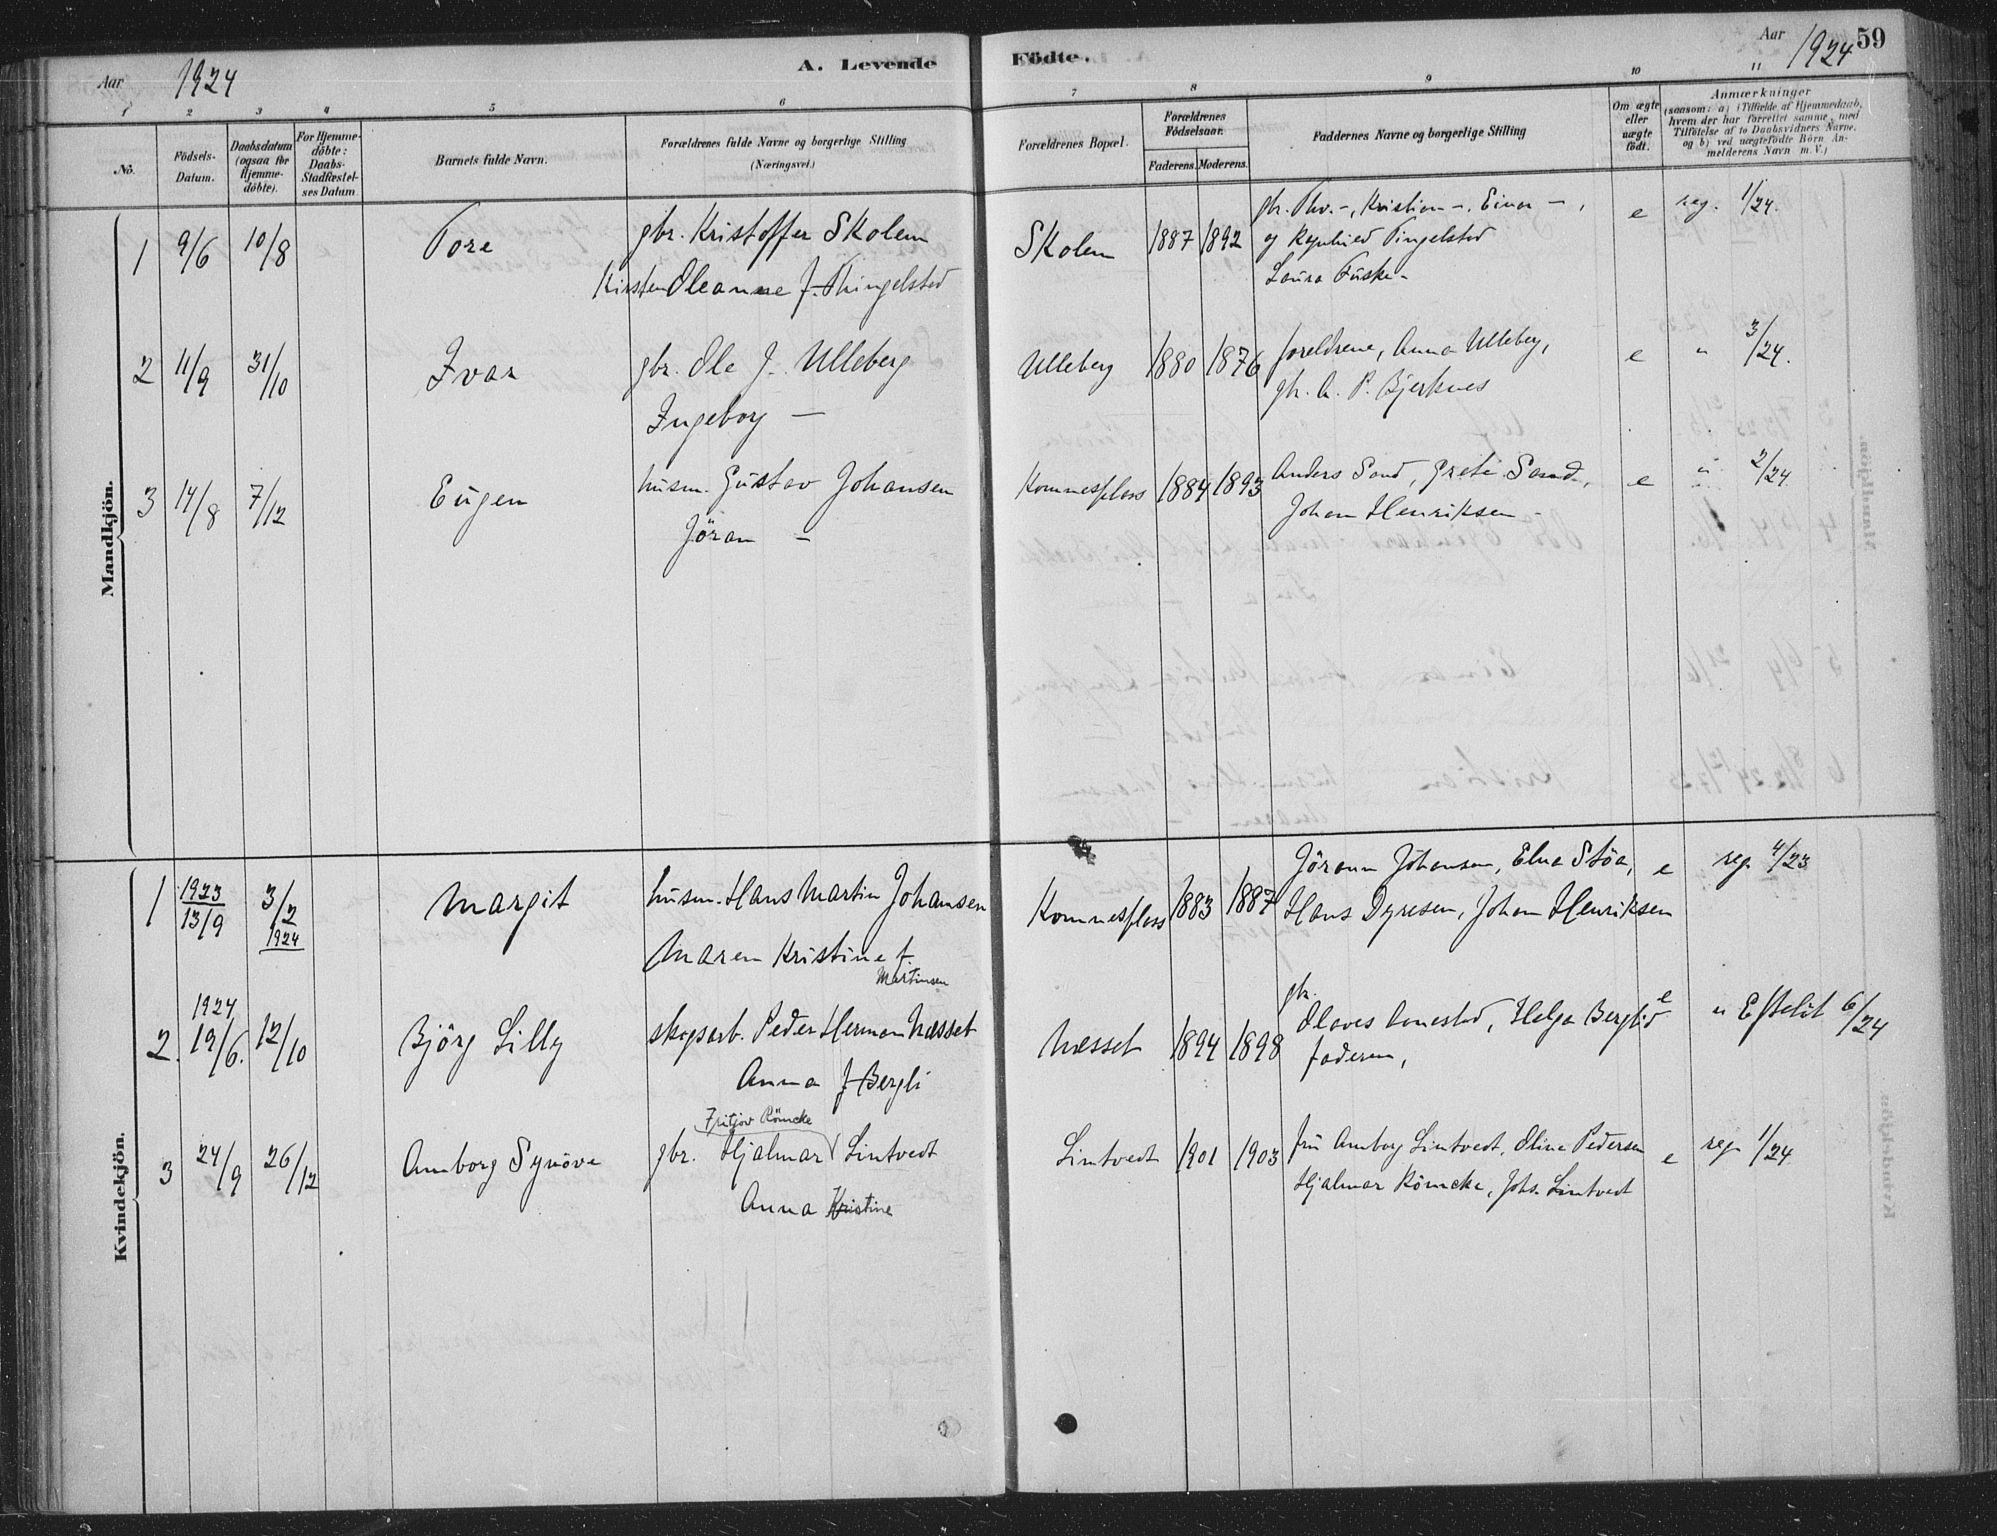 Aar 1924
A. Levende Födte.
Aar 1924 59
1 2 3 4 5 6 7 8 9 10 11
No.
Födsels-Datum.
Daabsdatum (ogsaa for Hjemmedöbte).
For Hjemmedöbte: Daabs-Stadfæstelses Datum
Barnets fulde Navn.
Forældrenes fulde Navne og borgerlige Stilling (Næringsvei.)
Forældrenes Bopæl.
Forældrenes Födselsaar.
Faderens. Moderens.
Faddernes Navne og borgerlige Stilling
Om ægte eller uægte födt.
Anmærkninger
(saasom: a) i Tilfælde af Hjemmedaab, hvem der har forrettet samme, med Tilföielse af to Daabsvidners Navne, og b) ved uægtefödte Börn Anmelderens Navn m. V.)
Mandkjön.
1 9/6 10/8 Tore gbr. Kristoffer Skolem Skolem 1887 1892 Kristian -, Einar -, e reg. 1/24.
Kirsten Oleanne f. Thingelstad og Tingelstad
Laura Fuske -
2 11/9 31/10 Ivar gbr. Ole J. Ulleberg Ulleberg 1880 1876 foreldrene, Anna Ulleberg, e " 3/24.
Ingeborg — gbr. A. P. Bjerknes
3 14/8 7/12 Eugen husm. Gustav Johansen Komnesplass 1884 1893 Anders Sand, Grete Sand, e " 2/24
Jöran — Johan Henriksen -
Kvindekjön.
1 1923 13/9 3/2 1924 Margit husm. Hans Martin Johansen Komnesplass 1883 1887 Jörann Johansen, Elna Stöa, e reg 4/23
Maren Kristine f. Martinsen Hans Dyresen, Johan Henriksen
2. 1924 19/6. 12/10 Björg Lilly skogsarb. Peder Herman Næsset Næsset 1894 1898 gbr. Olaves Avnestad, Helga Berglid e " Efteløt 6/24
Anna f Bergli faderen,
Fritjov Römcke
3 24/9 26/12 Amborg Synöve gbr. Hjalmar Lintvedt Lintvedt 1901 1903 fru Amborg Lintvedt, Oline Pedersen e reg 1/24
Anna Kristine Hjalmar Römcke, Johs. Lintvedt